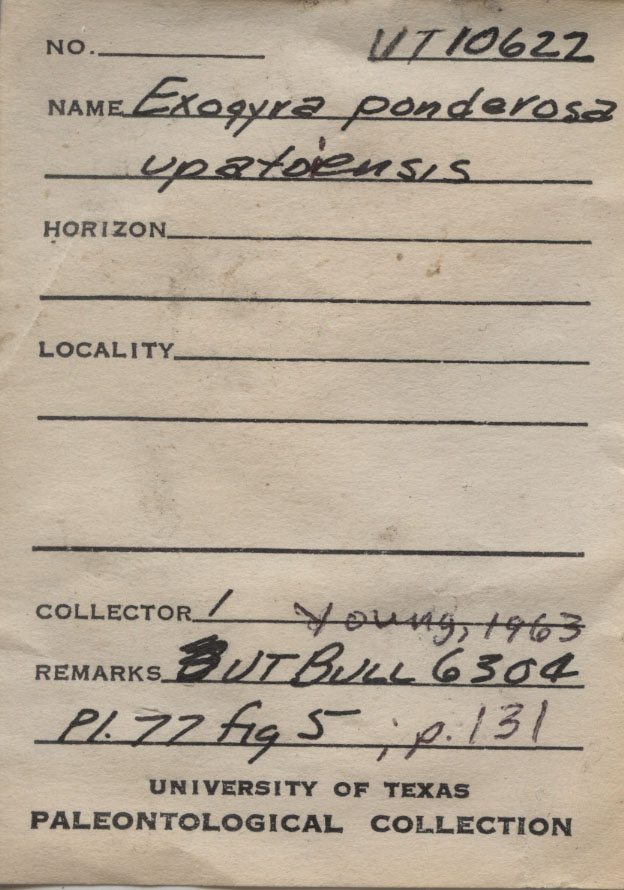 NO. UT10622
NAME Exogyra ponderosa
upatoiensis
HORIZON
LOCALITY
COLLECTOR / Young, 1963
REMARKS UT BULL 6304
Pl. 77 fig 5 ; p. 131
UNIVERSITY OF TEXAS
PALEONTOLOGICAL COLLECTION